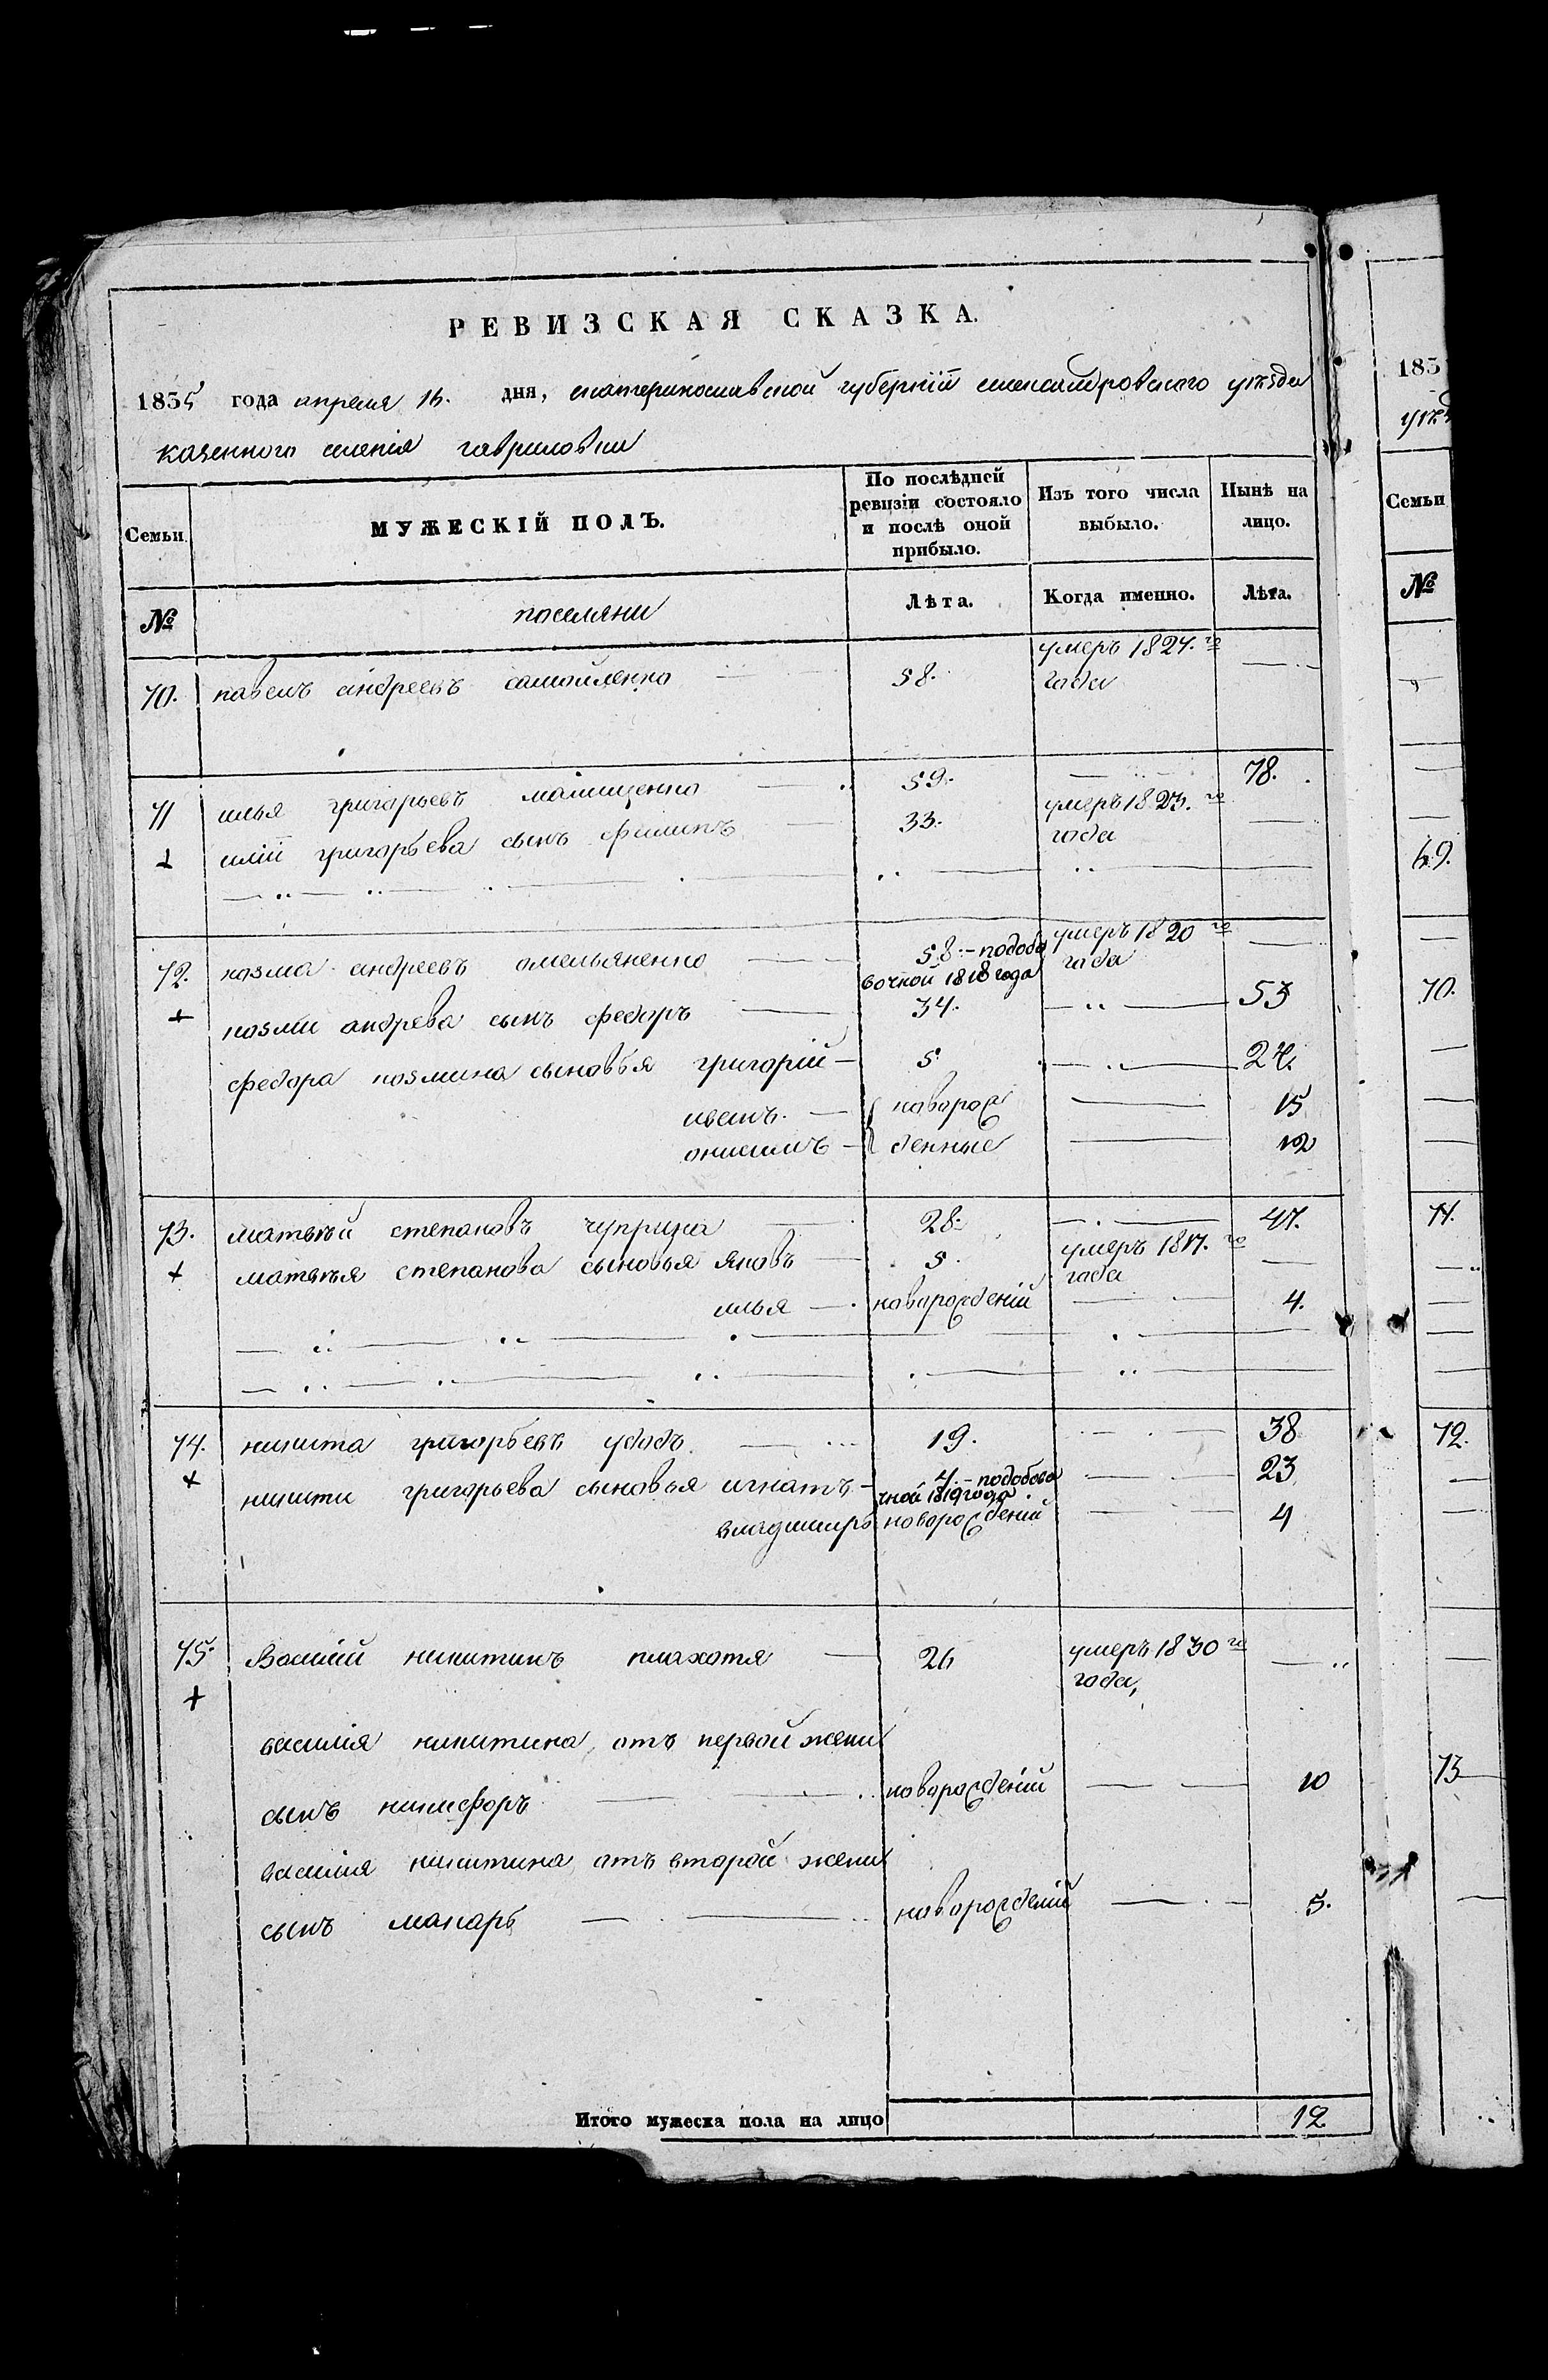 РЕВИЗСКАЯ СКАЗКА.
1835 года апреля 15. дня, екатеринославской губернiи александровского уѣзда
казенного селенiя гавриловки
Семьи. МУЖЕСКIЙ ПОЛЪ. По послѣдней ревизiи состояло и послѣ оной прибыло. Изъ того числа выбыло. Нынѣ на лицо.
№ поселяни Лѣта. Когда именно. Лѣта.
70. павелъ андреевъ самойленко 58. умеръ 1824. го года
71 илья григорьевъ 59. 78.
илiи григорьева сынъ филипъ 33. умеръ 1823. го года
72. козма андреевъ омельяненко 58. – подобавочной 1818 года умеръ 1820 го года
козми андрева сынъ федоръ 34. 53
федора козмина сыновья григорiй 5 24.
иванъ. новорож 15
онисимъ денные 12
73. матвѣй степановъ чуприна 28. 47.
матвѣя степанова сыновья яковъ 5. умеръ 1817. го года
илья новорожденiй 4.
74. никита григорьевъ удодъ. 19. 38
никити григорьева сыновья игнатъ 4. – подобавочной 1819 года 23
владимиръ новорожденiй 4
75. Василiй никитинъ плахотя 26 умеръ 1830 го года,
василiя никитина отъ первой жени
сынъ никифоръ новорожденiй 10
василiя никитина отъ второй жени
сынъ макаръ новорожденiй 5.
Итого мужеска пола на лицо 12
183
уѣз
Семьи
№
69.
70.
71.
72.
73